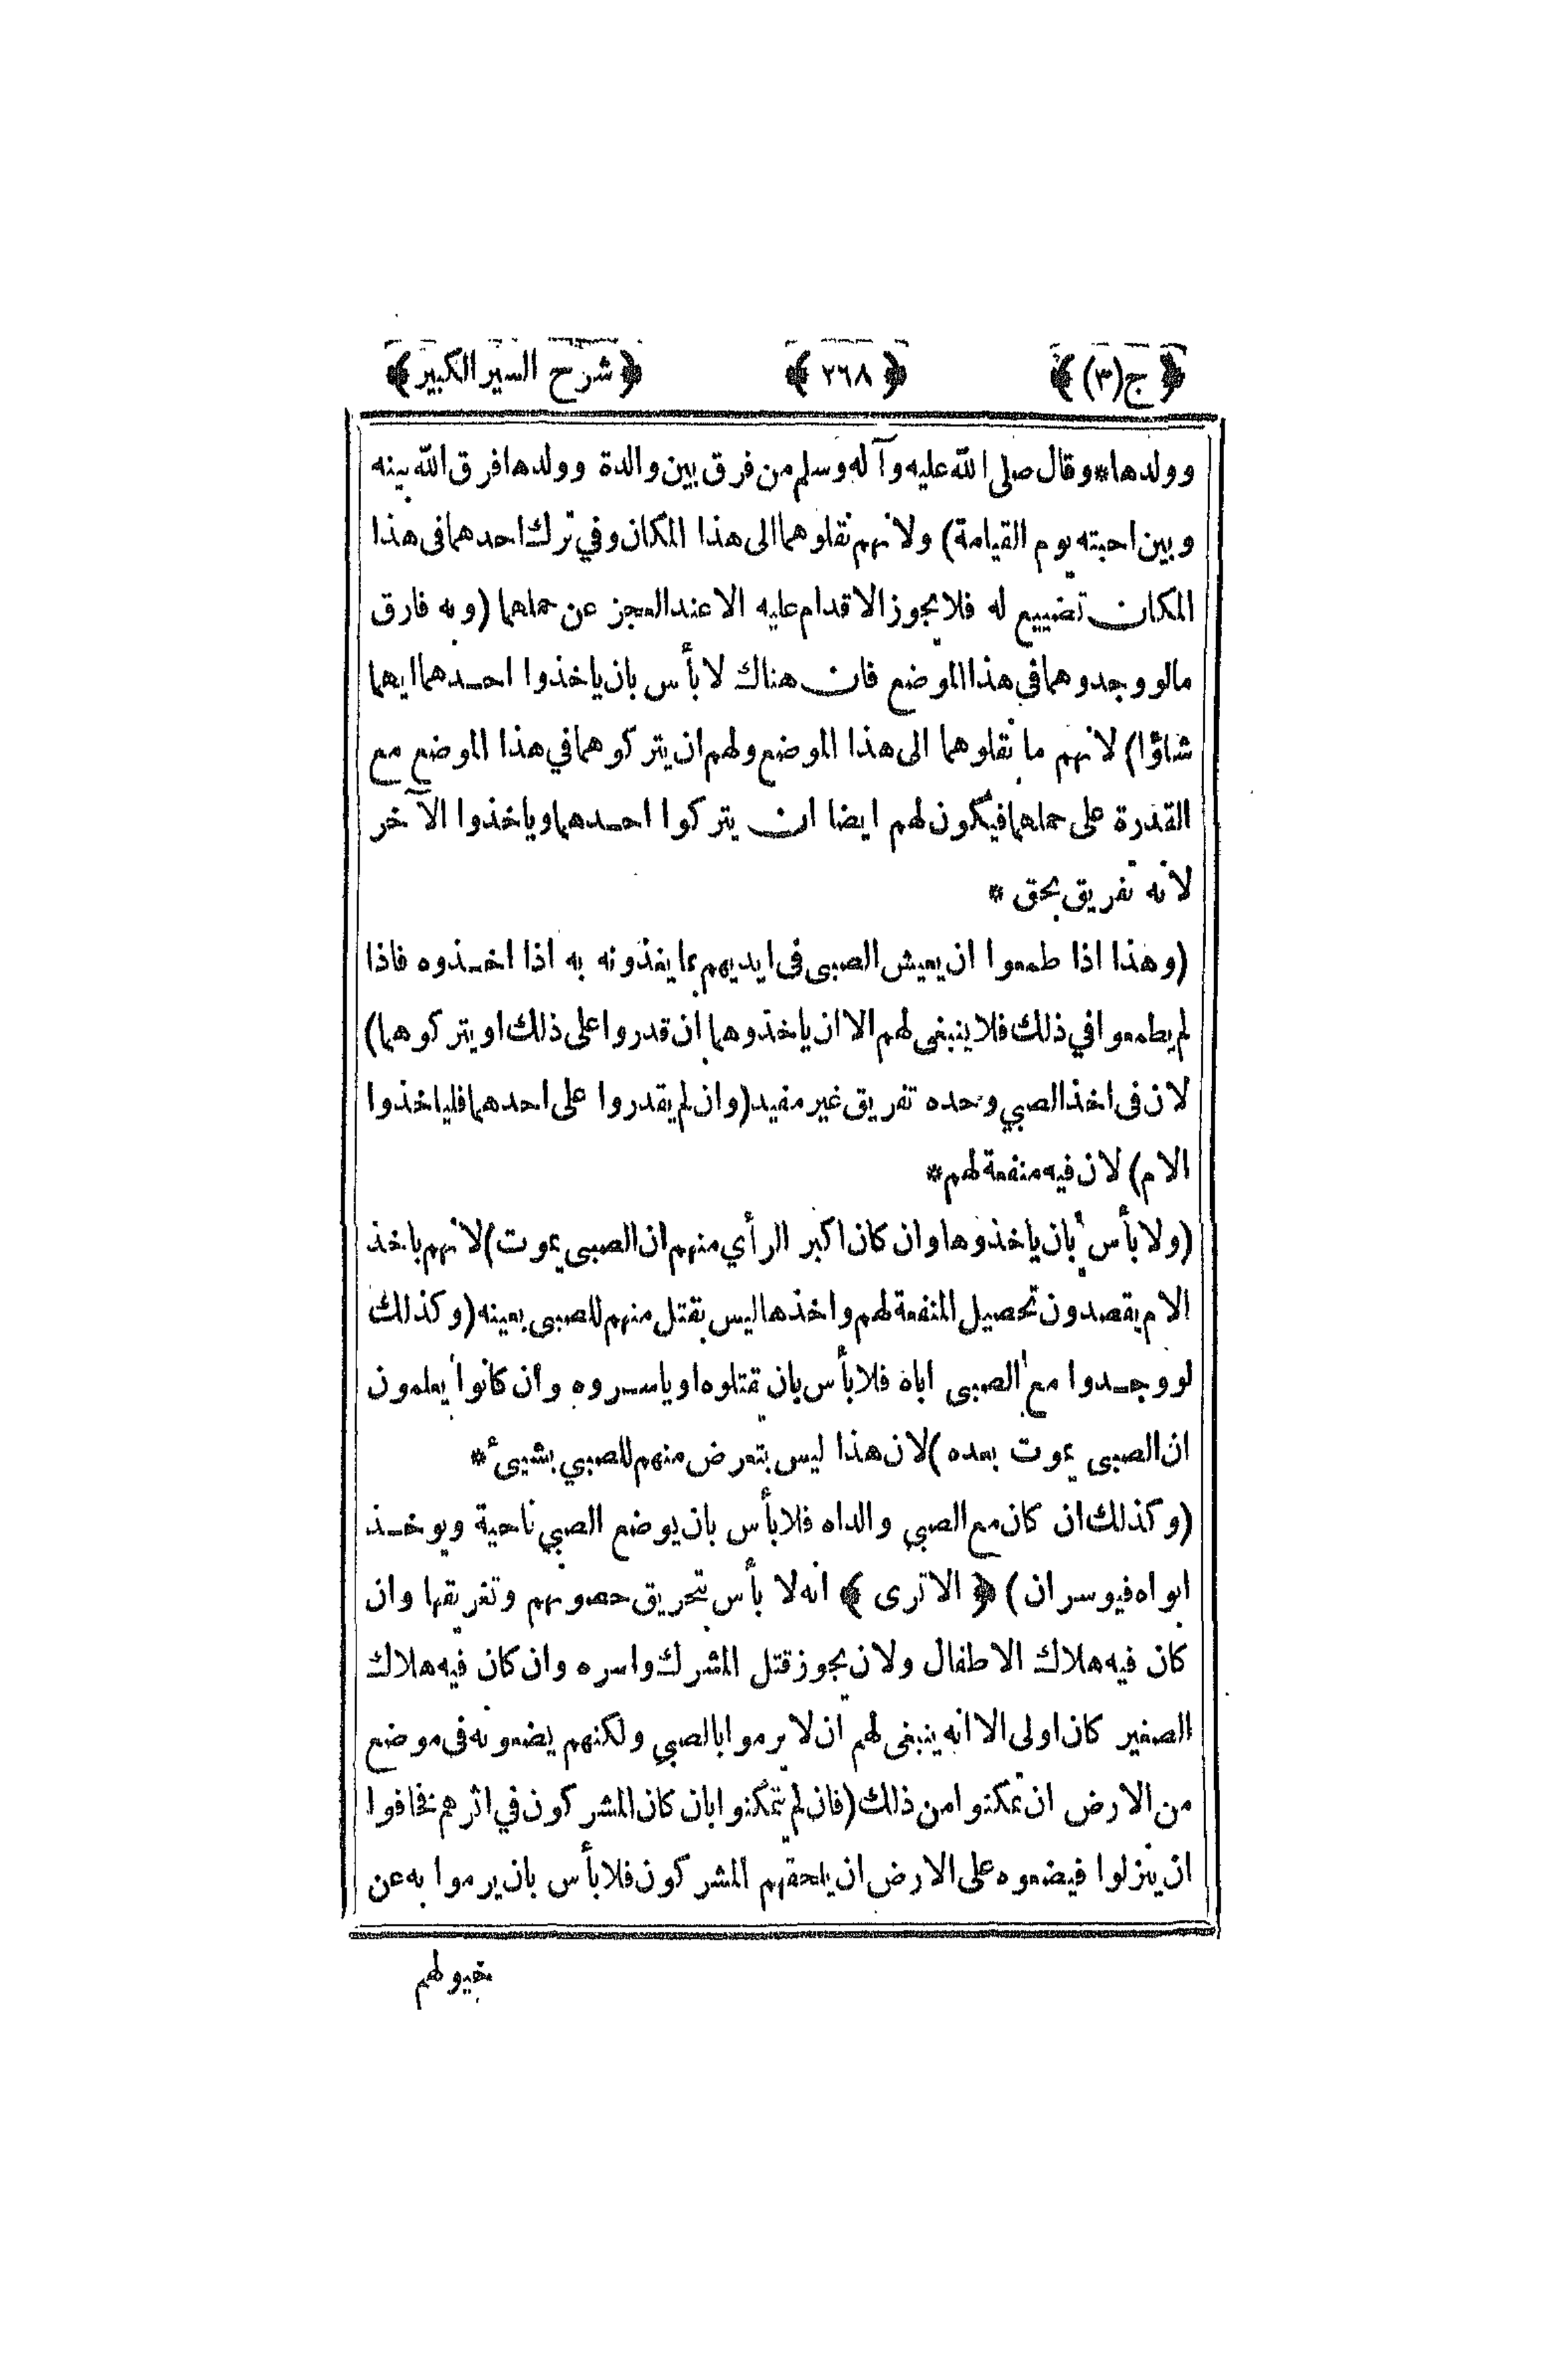 ﴿ج(٣)﴾ ﴿٢٦٨﴾ ﴿شرح السير الكبير﴾
وولدها*وقال صلى الله عليه وآله وسلم من فرق بين والدة وولدها فرق الله بينه
وبين احبته يوم القيامة) ولانهم نقلوهما الى هذا المكان وفي ترك احدهما فى هذا
المكان تضييع له فلا يجوز الاقدام عليه الا عند العجز عن حملهما (وبه فارق
مالو وجدوهما في هذا الموضع فان هناك لا بأس بان ياخذوا احدهما ايهما
شاؤا) لانهم ما نقلوهما الى هذا الموضع ولهم ان يتركوهما في هذا الموضع مع
القدرة على حملهما فيكون لهم ايضا ان يتركوا احدهما وياخذوا الآخر
لانه تفريق بحق *
(وهذا اذا طمعوا ان يعيش الصبى فى ايديهم بما يغذونه به اذا اخذوه فاذا
لم يطمعوا في ذلك فلا ينبغى لهم الا ان ياخذوهما ان قدروا على ذلك او يتركوهما)
لان فى اخذ الصبي وحده تفريق غير مفيد (وان لم يقدروا على احدهما فلياخذوا
الام) لان فيه منفعة لهم*
(ولا بأس بان ياخذوها وان كان اكبر الرأي منهم ان الصبى يموت) لانهم باخذ
الام يقصدون تحصيل المنفعة لهم واخذها ليس بقتل منهم للصبى بعينه (وكذلك
لو وجدوا مع الصبى اباه فلا بأس بان يقتلوه او ياسروه وان كانوا يعلمون
ان الصبى يموت بعده) لان هذا ليس بتعرض منهم للصبي بشيئ*
(وكذلك ان كان مع الصبي والداه فلا بأس بان يوضع الصبي ناحية ويوخذ
ابواه فيوسران) ﴿الا ترى﴾ انه لا بأس بتحريق حصونهم وتغريقها وان
كان فيه هلاك الاطفال ولان يجوز قتل المشرك واسره وان كان فيه هلاك
الصغير كان اولى الا انه ينبغى لهم ان لا يرموا بالصبي ولكنهم يضعونه فى موضع
من الارض ان تمكنوا من ذلك (فان لم يتمكنوا بان كان المشركون في اثرهم فخافوا
ان ينزلوا فيضعوه على الارض ان يلحقهم المشركون فلا بأس بان يرموا به عن
خيولهم